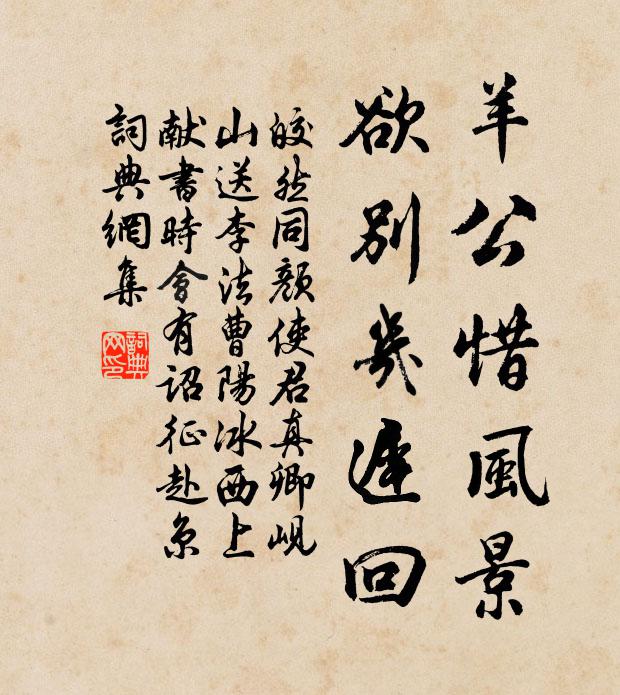 羊公惜風景
欲別幾遲回
皎然同顏使君真卿峴
山送李法曹陽冰西上
獻書時會有詔征赴京
詞典網集
詞典
网印